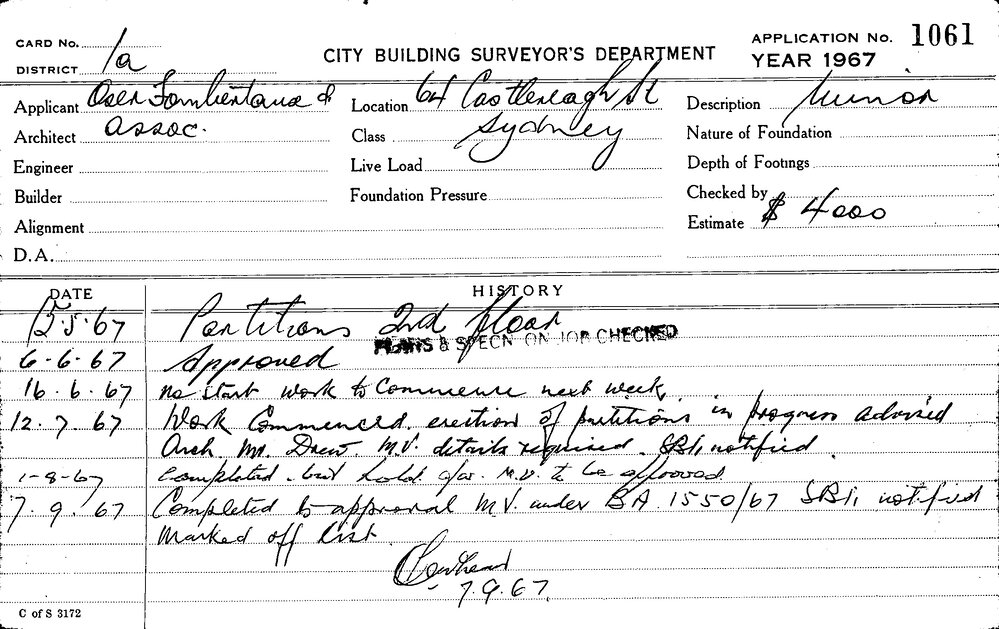 CARD No. 1a
DISTRICT
CITY BUILDING SURVEYOR'S DEPARTMENT
APPLICATION No. 1061
YEAR 1967
Applicant Oser Fombertaux &
Architect assoc.
Engineer
Builder
Alignment
D.A.
Location 64 Castlereagh St
Class Sydney
Live Load
Foundation Pressure
Description Minor
Nature of Foundation
Depth of Footings
Checked by
Estimate $ 4000
DATE HISTORY
15.5.67 Partitions 2nd floor
PLANS & SPECN ON JOB CHECKED
6-6-67 Approved
16.6.67 no start work to Commence next week.
12.7.67 Work Commenced. erection of partitions in progress advised
Arch Mr. Drew. M.V. details required. SBI, notified.
1-8-67 Completed but hold M.V. to be approved
7.9.67 Completed to approval M.V. under BA 1550/67 SBI, notified
Marked off list
7.9.67.
C of S 3172